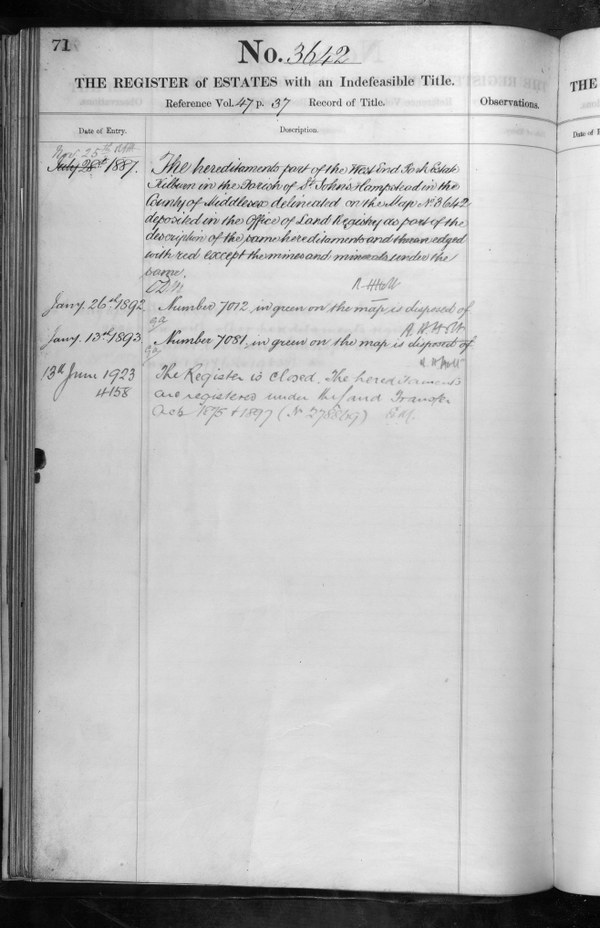 71
No. 3642
THE REGISTER of ESTATES with an Indefeasible Title.
Reference Vol. 47 p. 37 Record of Title.
Observations.
Date of Entry.
Description.
Nov. 25th
July 28th 1887.
The hereditaments part of the West End Park Estate
Kilburn in the Parish of St John's Hampstead in the
County of Middlesex delineated on the Map No. 3642
deposited in the Office of Land Registry as part of the
description of the same hereditaments and thereon edged
with red except the mines and minerals under the
same.
R H Holt
Jany. 26th 1892
Number 7012 in green on the map is disposed of
R. H. Holt
Jany. 13th 1893
Number 7081 in green on the map is disposed of
R H Holt
13th June 1923
4158
The Register is closed. The hereditaments
are registered under the Land Transfer
Acts 1875 & 1897 (No
THE
Date of E